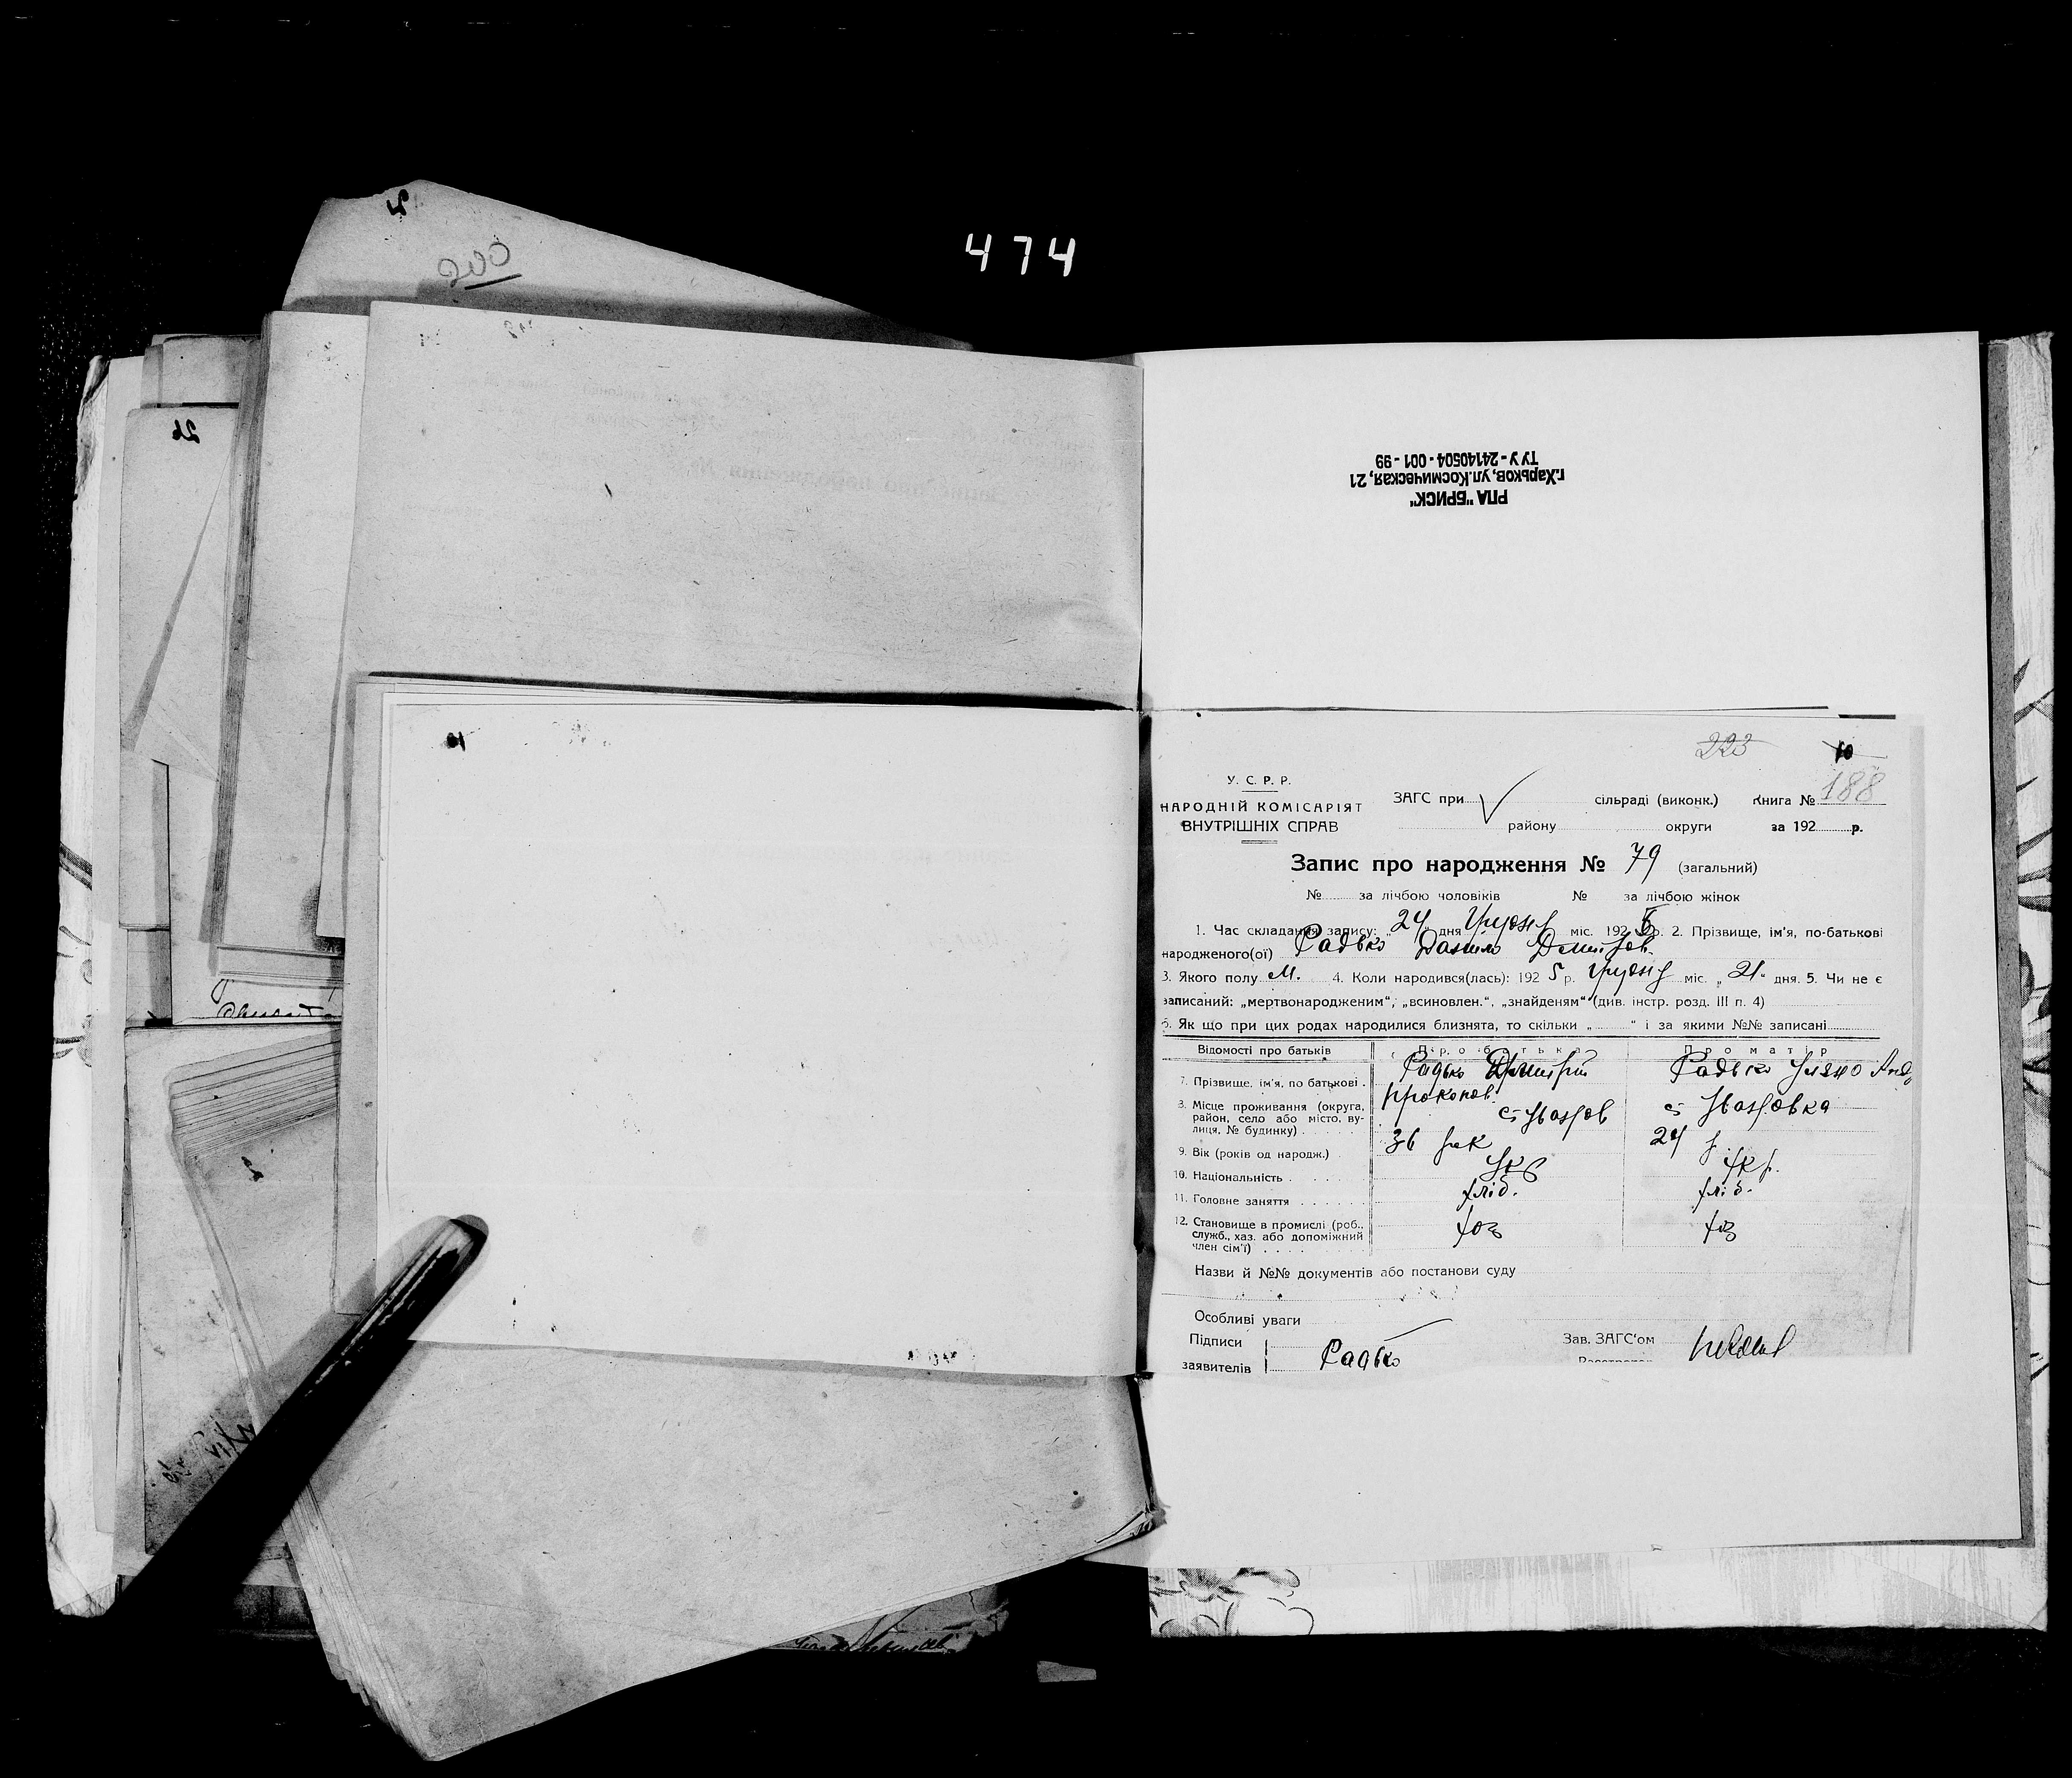 474
200
26
РПА "БРИСК"
г.Харьков, ул.Космическая, 21
ТУ У - 24140504 - 001 - 99
223
10
У. С. Р. Р.
НАРОДНІЙ КОМІСАРІЯТ
ВНУТРІШНІХ СПРАВ
ЗАГС при сільраді (виконк.) Книга № 188
району округи за 192 р.
Запис про народження № 79 (загальний)
№ за лічбою чоловіків № за лічбою жінок
1. Час складання запису: „24“ дня Грудня міс. 1925р. 2. Прізвище, ім'я, по-батькові
народженого(ої) Радько Данило Дмитров.
3. Якого полу М. 4. Коли народився(лась): 1925 р. Грудня міс. „21“ дня. 5. Чи не є
записаний: „мертвонародженим“, „всиновлен.“, „знайденям“ (див. інстр. розд. III п. 4)
6. Як що при цих родах народилися близнята, то скільки „ “ і за якими №№ записані
Відомості про батьків Про батька Про матір
7. Прізвище, ім'я, по батькові . Радько Дмитрій Прокопов. Радько Уляно Анд
8. Місце проживання (округа, район, село або місто, вулиця, № будинку) . . . . . с
9. Вік (років од народж.) . 36 рок 24 р.
10. Національність . . . . Укр Укр.
11. Головне заняття . . . . . . хліб. хліб.
12. Становище в промислі (роб., служб., хаз. або допоміжний член сім'ї) . . . . . хоз хоз
Назви й №№ документів або постанови суду
Особливі уваги
Підписи
заявителів Радько
Зав. ЗАГС'ом